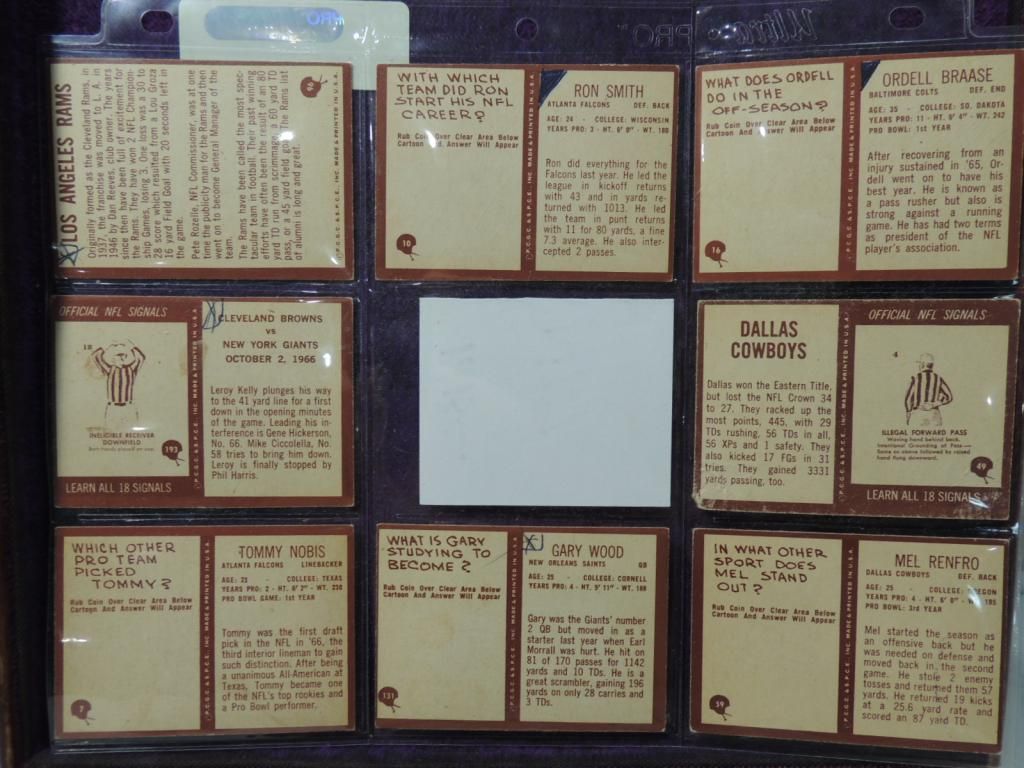 LOS ANGELES RAMS
Originally formed as the Cleveland Rams, in
1937, the franchise was moved to L. A. in
1946 by Dan Reeves, club owner. The years
since then have been full of excitement for
the Rams. They have won 2 NFL Champion-
ship Games, losing 3. One loss was a 30 to
28 score which resulted from a Lou Groza
16 yard Field Goal with 20 seconds left in
the game.
Pete Rozelle, NFL Commissioner, was at one
time the publicity man for the Rams and then
went on to become General Manager of the
team.
The Rams have been called the most spec-
tacular team in football. Their past winning
efforts have often been the result of an 80
yard TD run from scrimmage, a 60 yard TD
pass, or a 45 yard field goal. The Rams list
of alumni is long and great.
96
P.C.G.C. & S.P.C.E., INC. MADE & PRINTED IN U.S.A.
WITH WHICH
TEAM DID RON
START HIS NFL
CAREER?
Rub Coin Over Clear Area Below
Cartoon And Answer Will Appear
10
P.C.G.C. & S.P.C.E., INC. MADE & PRINTED IN U.S.A.
RON SMITH
ATLANTA FALCONS DEF. BACK
AGE: 24 - COLLEGE: WISCONSIN
YEARS PRO: 3 - HT. 6' 0" - WT. 180
Ron did everything for the
Falcons last year. He led the
league in kickoff returns
with 43 and in yards re-
turned with 1013. He led
the team in punt returns
with 11 for 80 yards, a fine
7.3 average. He also inter-
cepted 2 passes.
WHAT DOES ORDELL
DO IN THE
OFF-SEASON?
Rub Coin Over Clear Area Below
Cartoon And Answer Will Appear
16
P.C.G.C. & S.P.C.E., INC. MADE & PRINTED IN U.S.A.
ORDELL BRAASE
BALTIMORE COLTS DEF. END
AGE: 35 - COLLEGE: SO. DAKOTA
YEARS PRO: 11 - HT. 6' 4" - WT. 242
PRO BOWL: 1st YEAR
After recovering from an
injury sustained in '65, Or-
dell went on to have his
best year. He is known as
a pass rusher but also is
strong against a running
game. He has had two terms
as president of the NFL
player's association.
OFFICIAL NFL SIGNALS
18
INELIGIBLE RECEIVER
DOWNFIELD
193
LEARN ALL 18 SIGNALS
P.C.G.C. & S.P.C.E., INC. MADE & PRINTED IN U.S.A.
CLEVELAND BROWNS
VS
NEW YORK GIANTS
OCTOBER 2, 1966
Leroy Kelly plunges his way
to the 41 yard line for a first
down in the opening minutes
of the game. Leading his in-
terference is Gene Hickerson,
No. 66. Mike Ciccolella, No.
58 tries to bring him down.
Leroy is finally stopped by
Phil Harris.
DALLAS
COWBOYS
Dallas won the Eastern Title,
but lost the NFL Crown 34
to 27. They racked up the
most points, 445, with 29
TDs rushing, 56 TDs in all,
56 XPs and 1 safety. They
also kicked 17 FGs in 31
tries. They gained 3331
yards passing, too.
P.C.G.C. & S.P.C.E., INC. MADE & PRINTED IN U.S.A.
OFFICIAL NFL SIGNALS
4
ILLEGAL FORWARD PASS
Waving hand behind back.
Intentional Grounding of Pass—
Same as above followed by raised
hand flung downward.
49
LEARN ALL 18 SIGNALS
WHICH OTHER
PRO TEAM
PICKED
TOMMY?
Rub Coin Over Clear Area Below
Cartoon And Answer Will Appear
7
P.C.G.C. & S.P.C.E., INC. MADE & PRINTED IN U.S.A.
TOMMY NOBIS
ATLANTA FALCONS LINEBACKER
AGE: 23 - COLLEGE: TEXAS
YEARS PRO: 2 - HT. 6' 2" - WT. 230
PRO BOWL GAME: 1st YEAR
Tommy was the first draft
pick in the NFL in '66, the
third interior lineman to gain
such distinction. After being
a unanimous All-American at
Texas, Tommy became one
of the NFL's top rookies and
a Pro Bowl performer.
WHAT IS GARY
STUDYING TO
BECOME?
Rub Coin Over Clear Area Below
Cartoon And Answer Will Appear
131
P.C.G.C. & S.P.C.E., INC. MADE & PRINTED IN U.S.A.
GARY WOOD
NEW ORLEANS SAINTS QB
AGE: 25 - COLLEGE: CORNELL
YEARS PRO: 4 - HT. 5' 11" - WT. 188
Gary was the Giants' number
2 QB but moved in as a
starter last year when Earl
Morrall was hurt. He hit on
81 of 170 passes for 1142
yards and 10 TDs. He is a
great scrambler, gaining 196
yards on only 28 carries and
3 TDs.
IN WHAT OTHER
SPORT DOES
MEL STAND
OUT?
Rub Coin Over Clear Area Below
Cartoon And Answer Will Appear
59
P.C.G.C. & S.P.C.E., INC. MADE & PRINTED IN U.S.A.
MEL RENFRO
DALLAS COWBOYS DEF. BACK
AGE: 25 - COLLEGE: OREGON
YEARS PRO: 4 - HT. 6' 0" - WT. 195
PRO BOWL: 3rd YEAR
Mel started the season as
an offensive back but he
was needed on defense and
moved back in the second
game. He stole 2 enemy
tosses and returned them 57
yards. He returned 19 kicks
at a 25.6 yard rate and
scored an 87 yard TD.
Ultra PRO